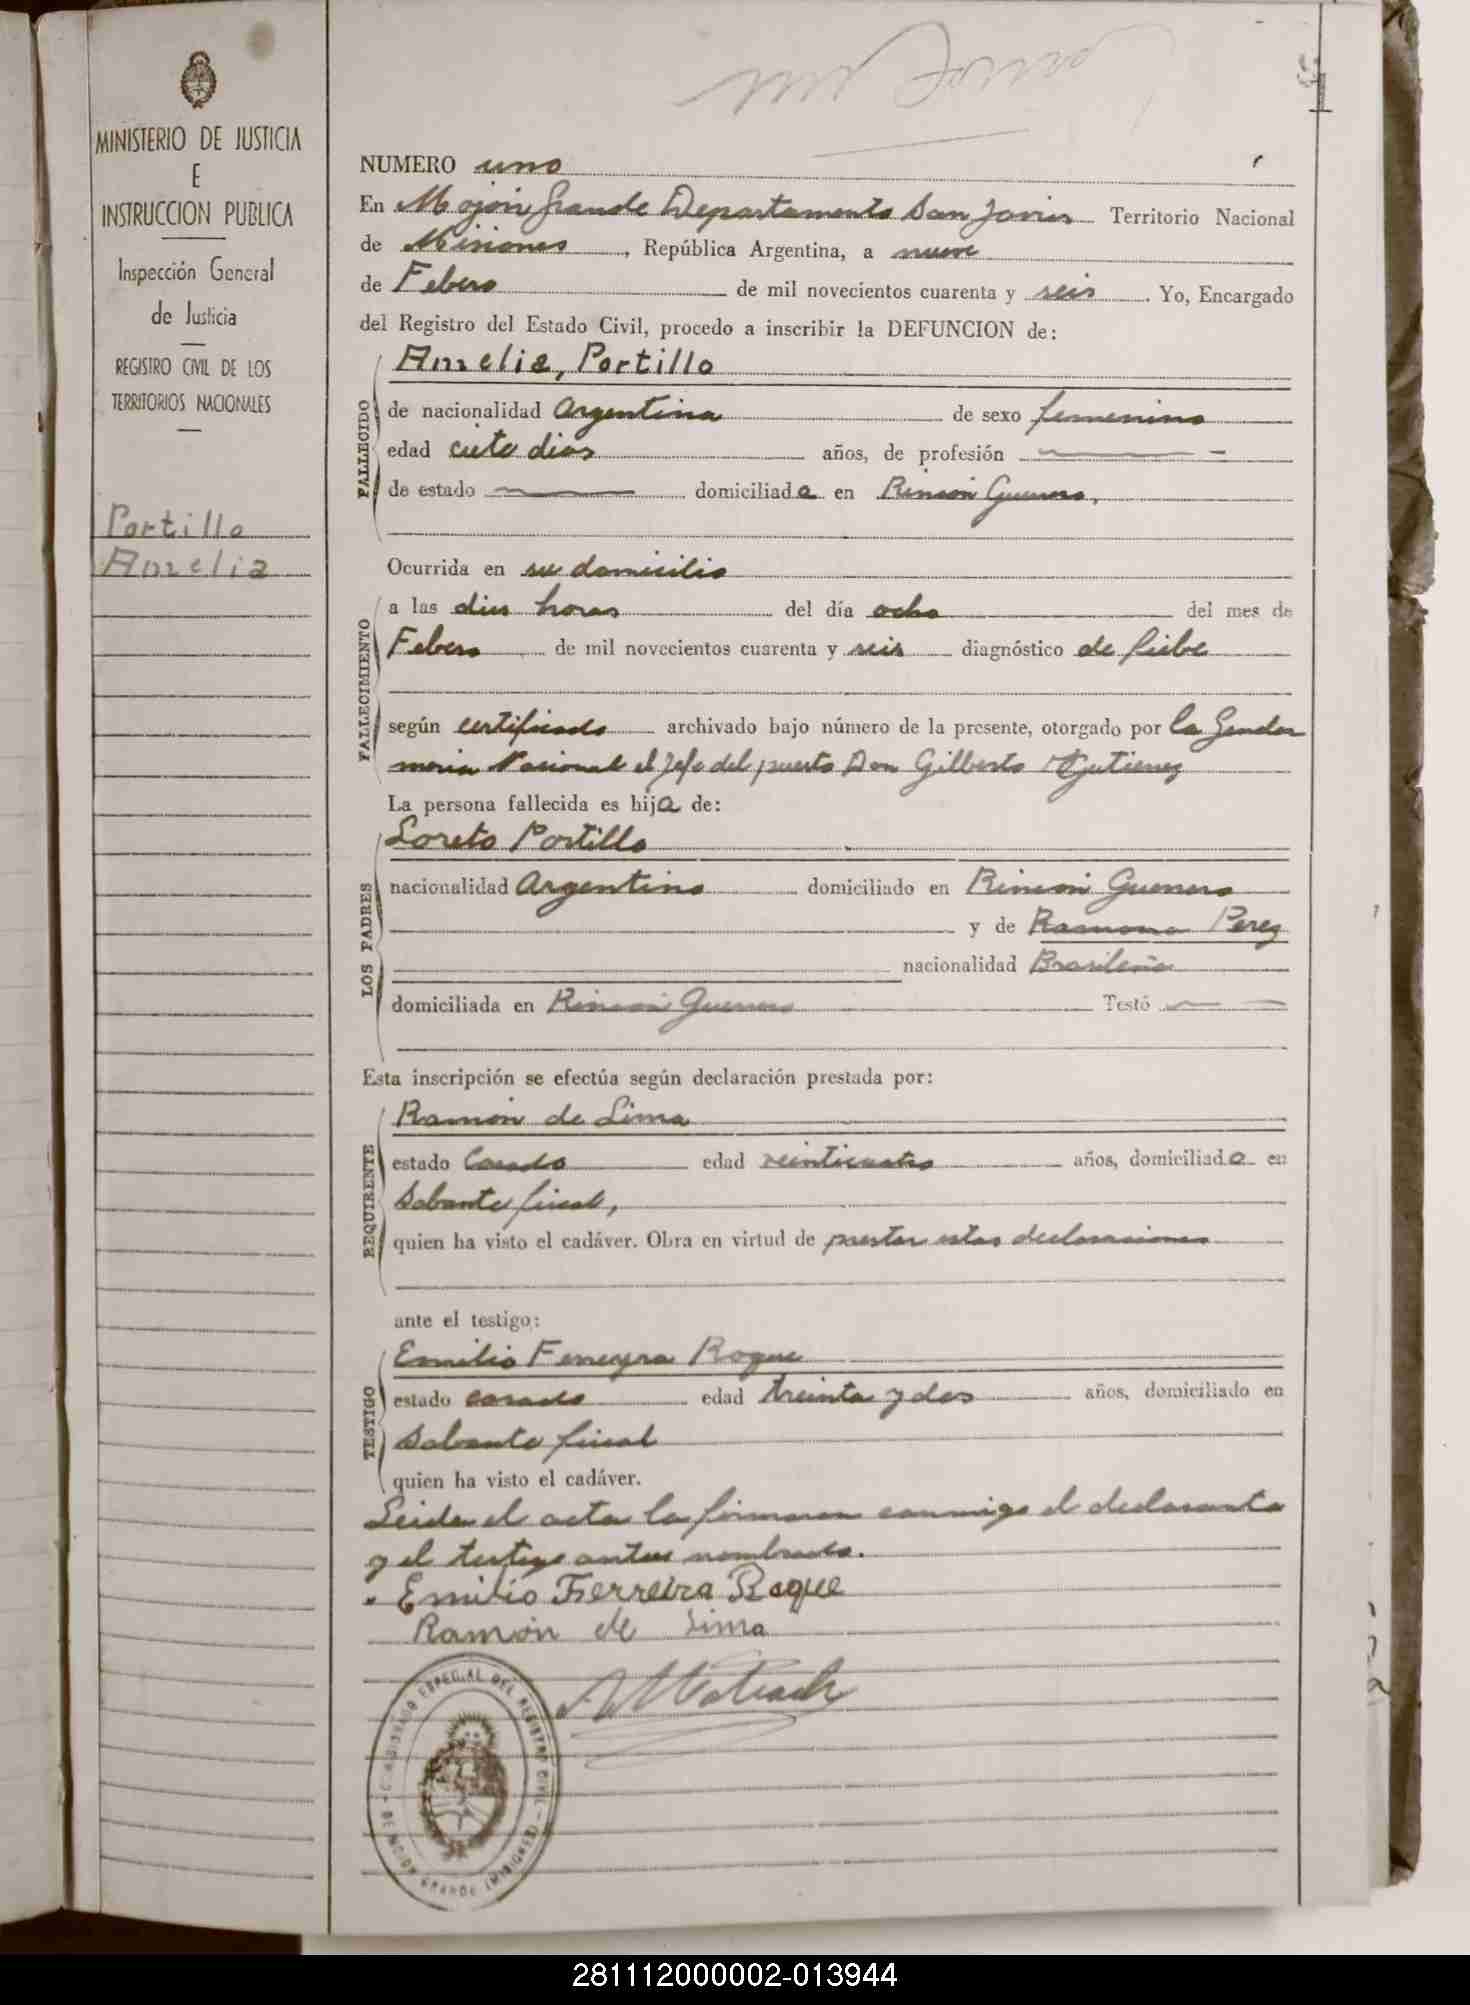 MINISTERIO DE JUSTICIA
E
INSTRUCCION PUBLICA
Inspección General
de Justicia
REGISTRO CIVIL DE LOS
TERRITORIOS NACIONALES
Portillo
Amelia
1
NUMERO uno
En Mojón Grande Departamento San Javier Territorio Nacional
de Misiones, República Argentina, a nueve
de Febero de mil novecientos cuarenta y seis. Yo, Encargado
del Registro del Estado Civil, procedo a inscribir la DEFUNCION de:
Amelia, Portillo
FALLECIDO
de nacionalidad Argentina de sexo femenino
edad ciete dias años, de profesión
de estado domiciliada en Rincón Guerrero,
FALLECIMIENTO
Ocurrida en su domicilio
a las dies horas del día ocho del mes de
Febero de mil novecientos cuarenta y seis diagnóstico de fiebe
según certificado archivado bajo número de la presente, otorgado por la Gendar
meria Nacional el Jefe del puerto Don Gilberto Gutierrez
La persona fallecida es hija de:
LOS PADRES
Loreto Portillo
nacionalidad Argentino domiciliado en Rincón Guerrero
y de Ramona Perez
nacionalidad Brasileña
domiciliada en Rincón Guerrero Testó
Esta inscripción se efectúa según declaración prestada por:
REQUIRENTE
Ramón de Lima
estado Casado edad veinticuatro años, domiciliado en
Sobante fiscal,
quien ha visto el cadáver. Obra en virtud de prestar estas declaraciones
ante el testigo:
TESTIGO
Emilio Ferreyra Roque
estado casado edad treinta y dos años, domiciliado en
Sobante fiscal
quien ha visto el cadáver.
Leida el acta la firmaron conmigo el declarante
y el testigo antes nombrado.
Emilio Ferreira Roque
Ramón de Lima
ESPECIAL DEL REGISTRO CIVIL
DE MOJON GRANDE (MISIONES)
281112000002-013944